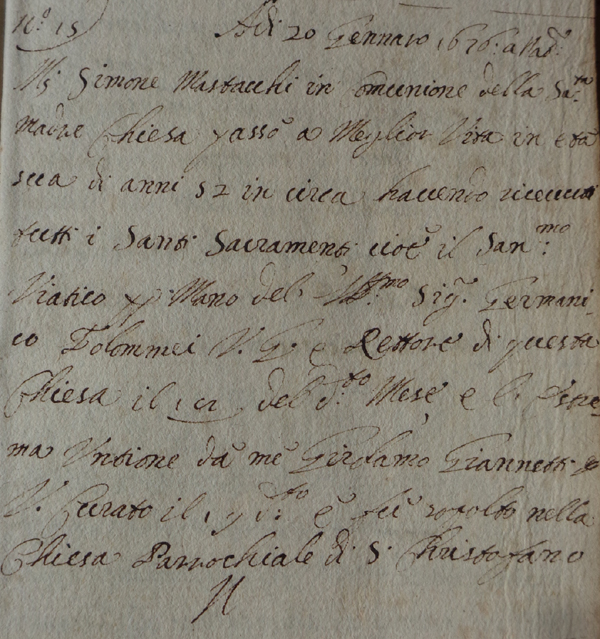 N.º 15 Adi 20 Gennaro 1676: a Nad.
Simone Mastacchi in comunione della Sa:ta
Madre Chiesa passò a Meglior Vita in età
sua di anni 52 in circa havendo riceuuti
tutti i Santi Sacramenti cioè il San:mo
Viatico p Mano del Sig. Germani-
co Tolommei V. G. e Rettore di questa
Chiesa il del d:to Mese e l' Estre-
ma Untione da me Girolamo Giannetti
V. Curato il d:to e fù sopolto nella
Chiesa Parrochiale di S. Christofano